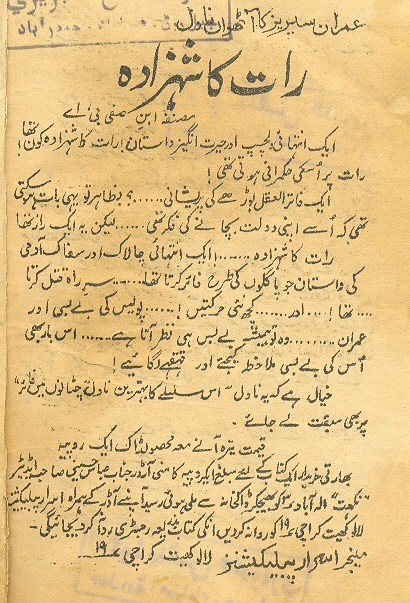 عمران سیریز کا ٦ ٹھواں ناول
رات کا شہزادہ
مصنفہ ابن صفی بی اے
ایک انتہائی دلچسپ اور حیرت انگیز داستان! رات کا شہزادہ کون تھا!
رات پر اُسکی حکمرانی ہوتی تھی!
ایک فاتر العقل بوڑھے کی پریشانی ...... بظاہر تو یہی بات ہو سکتی
تھی کہ اُسے اپنی دولت بچانے کی فکر تھی ...... لیکن یہ ایک راز تھا
رات کا شہزادہ ....... ایک انتہائی چالاک اور سفاک آدمی
کی داستان جو پاگلوں کی طرح فائر کرتا تھا ..... سرِ راہ قتل کرتا
.... تھا! .... اور ........ کھُ نئی حرکتیں! ...... پولیس کی بے بسی اور
عمران ........ وہ تو ہمیشہ بے بس ہی نظر آتا ہے ..... اس بار بھی
اُس کی بے بسی ملاخط کیجئے اور قہقہے لگائیے!
خیال ہے کہ یہ ناول اس سلسلے کا بہترین ناول "چٹانوں میں فائر"
پر بھی سبقت لے جائے۔
قیمت تیرہ آنے معہ محصولڈاک ایک روپیہ
بھارتی خریدار ایک کتاب کے لئے مبلغ ایکروپیہ کا منی آرڈر جناب عباس حسینی صاحب ایڈیٹر
"نکہت" الہ آباد ٣ کو بھیجکر ڈاکخانہ سے ملی ہوئی رسید اپنے آرڈر کے ہمراہ اسرار پبلیکیشنز
لالو کھیت کراچی ١٩ کو روانہ کردیں انکی کتاب بذریعہ رجسٹری روانہ کردیجائیگی۔
منیجر اسرار پبلیکیشنز لالو کھیت کراچی ١٩